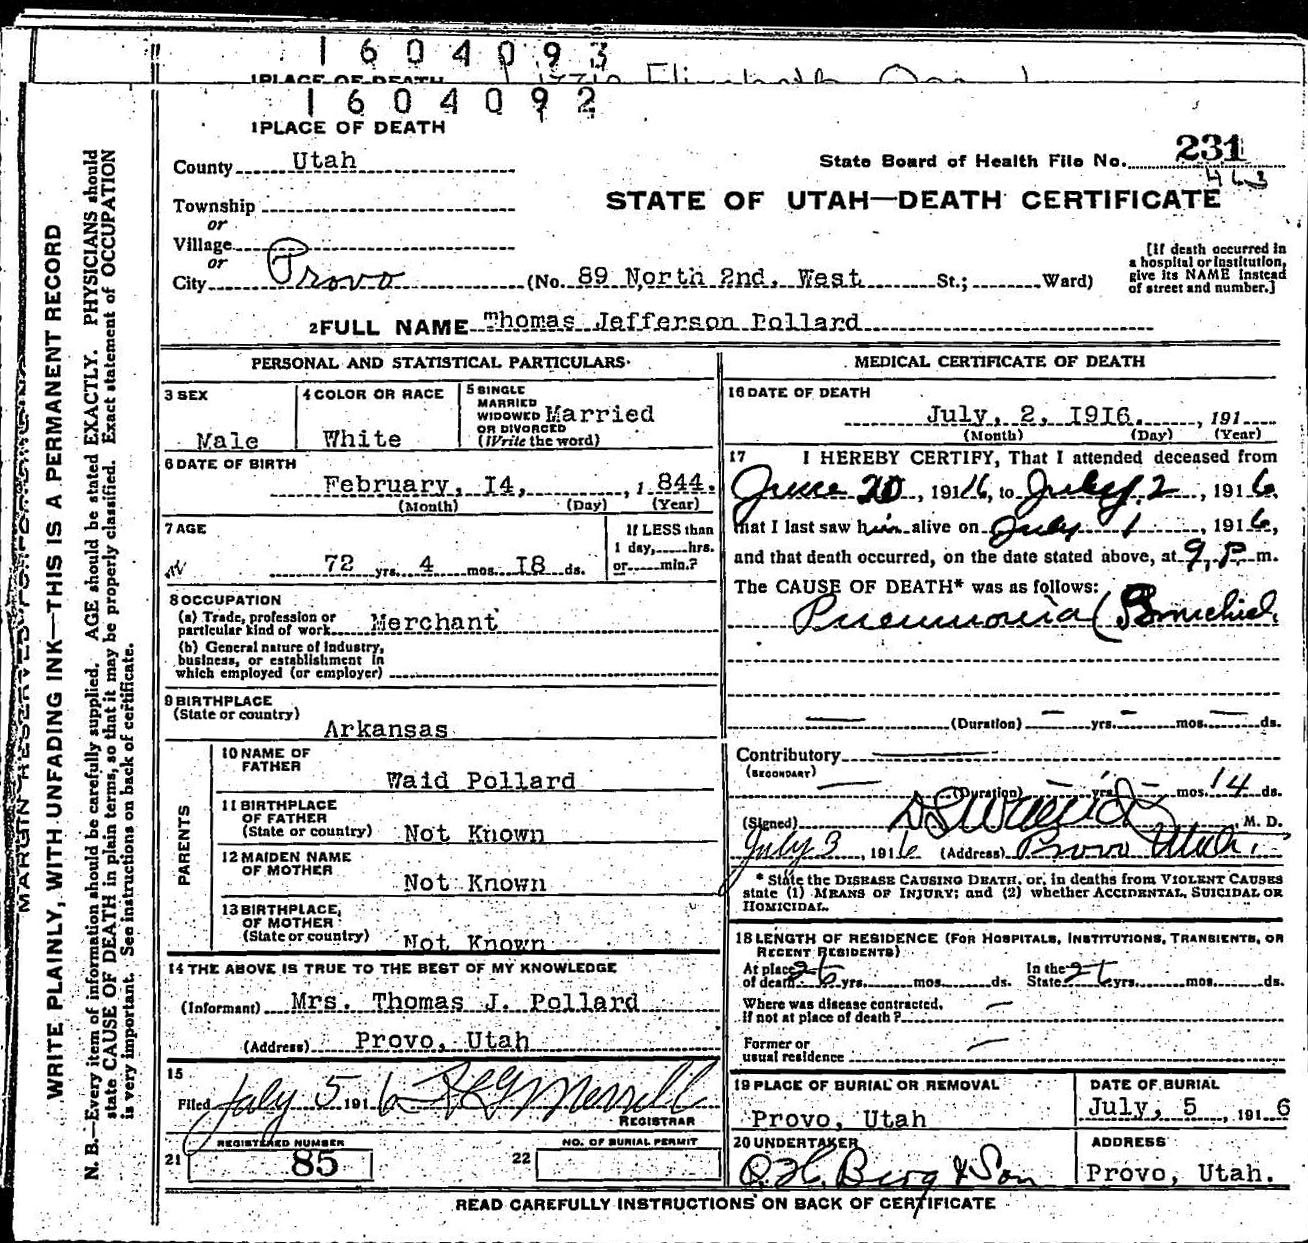 1604093
1PLACE OF DEATH Elizabeth
1604092
1PLACE OF DEATH
County Utah
State Board of Health File No. 231
463
Township
or
STATE OF UTAH—DEATH CERTIFICATE
Village
or
City Provo (No. 89 North 2nd. West St.; Ward)
[If death occurred in
a hospital or institution,
give its NAME instead
of street and number.]
2FULL NAME Thomas Jefferson Pollard
PERSONAL AND STATISTICAL PARTICULARS
3 SEX
Male
4 COLOR OR RACE
White
5 SINGLE
MARRIED
WIDOWED
OR DIVORCED
(Write the word)
Married
6 DATE OF BIRTH
February, I4, , 1 844.
(Month) (Day) (Year)
7 AGE
72 yrs. 4 mos. I8 ds.
If LESS than
1 day, hrs.
or min.?
8 OCCUPATION
(a) Trade, profession or
particular kind of work Merchant
(b) General nature of industry,
business, or establishment in
which employed (or employer)
9 BIRTHPLACE
(State or country)
Arkansas
PARENTS
10 NAME OF
FATHER
Waid Pollard
11 BIRTHPLACE
OF FATHER
(State or country) Not Known
12 MAIDEN NAME
OF MOTHER
Not Known
13 BIRTHPLACE,
OF MOTHER
(State or country) Not Known
14 THE ABOVE IS TRUE TO THE BEST OF MY KNOWLEDGE
(Informant) Mrs. Thomas J. Pollard
(Address) Provo, Utah
15
Filed July 5 1916 Merrill
REGISTRAR
REGISTERED NUMBER
21 85
NO. OF BURIAL PERMIT
22
MEDICAL CERTIFICATE OF DEATH
16 DATE OF DEATH
July, 2, I9I6. , 191
(Month) (Day) (Year)
17 I HEREBY CERTIFY, That I attended deceased from
June 20, 1916, to July 2, 1916,
that I last saw him alive on July 1, 1916,
and that death occurred, on the date stated above, at 9 P m.
The CAUSE OF DEATH* was as follows:
Pneumonia (Bronchial
(Duration) yrs. mos. ds.
Contributory
(SECONDARY)
(Duration) yrs. mos. 14 ds.
(Signed) , M. D.
July 3, 1916 (Address) Provo Utah.
* State the DISEASE CAUSING DEATH, or, in deaths from VIOLENT CAUSES
state (1) MEANS OF INJURY; and (2) whether ACCIDENTAL, SUICIDAL OR
HOMICIDAL.
18 LENGTH OF RESIDENCE (FOR HOSPITALS, INSTITUTIONS, TRANSIENTS, OR
RECENT RESIDENTS)
At place
of death 26 yrs. mos. ds.
In the
State 26 yrs. mos. ds.
Where was disease contracted,
If not at place of death?
Former or
usual residence
19 PLACE OF BURIAL OR REMOVAL
Provo, Utah
DATE OF BURIAL
July, 5 , 191 6
20 UNDERTAKER
O. H. Berg & Son
ADDRESS
Provo, Utah.
READ CAREFULLY INSTRUCTIONS ON BACK OF CERTIFICATE
MARGIN RESERVED FOR BINDING
WRITE PLAINLY, WITH UNFADING INK—THIS IS A PERMANENT RECORD
N. B.—Every item of information should be carefully supplied. AGE should be stated EXACTLY. PHYSICIANS should
state CAUSE OF DEATH in plain terms, so that it may be properly classified. Exact statement of OCCUPATION
is very important. See instructions on back of certificate.